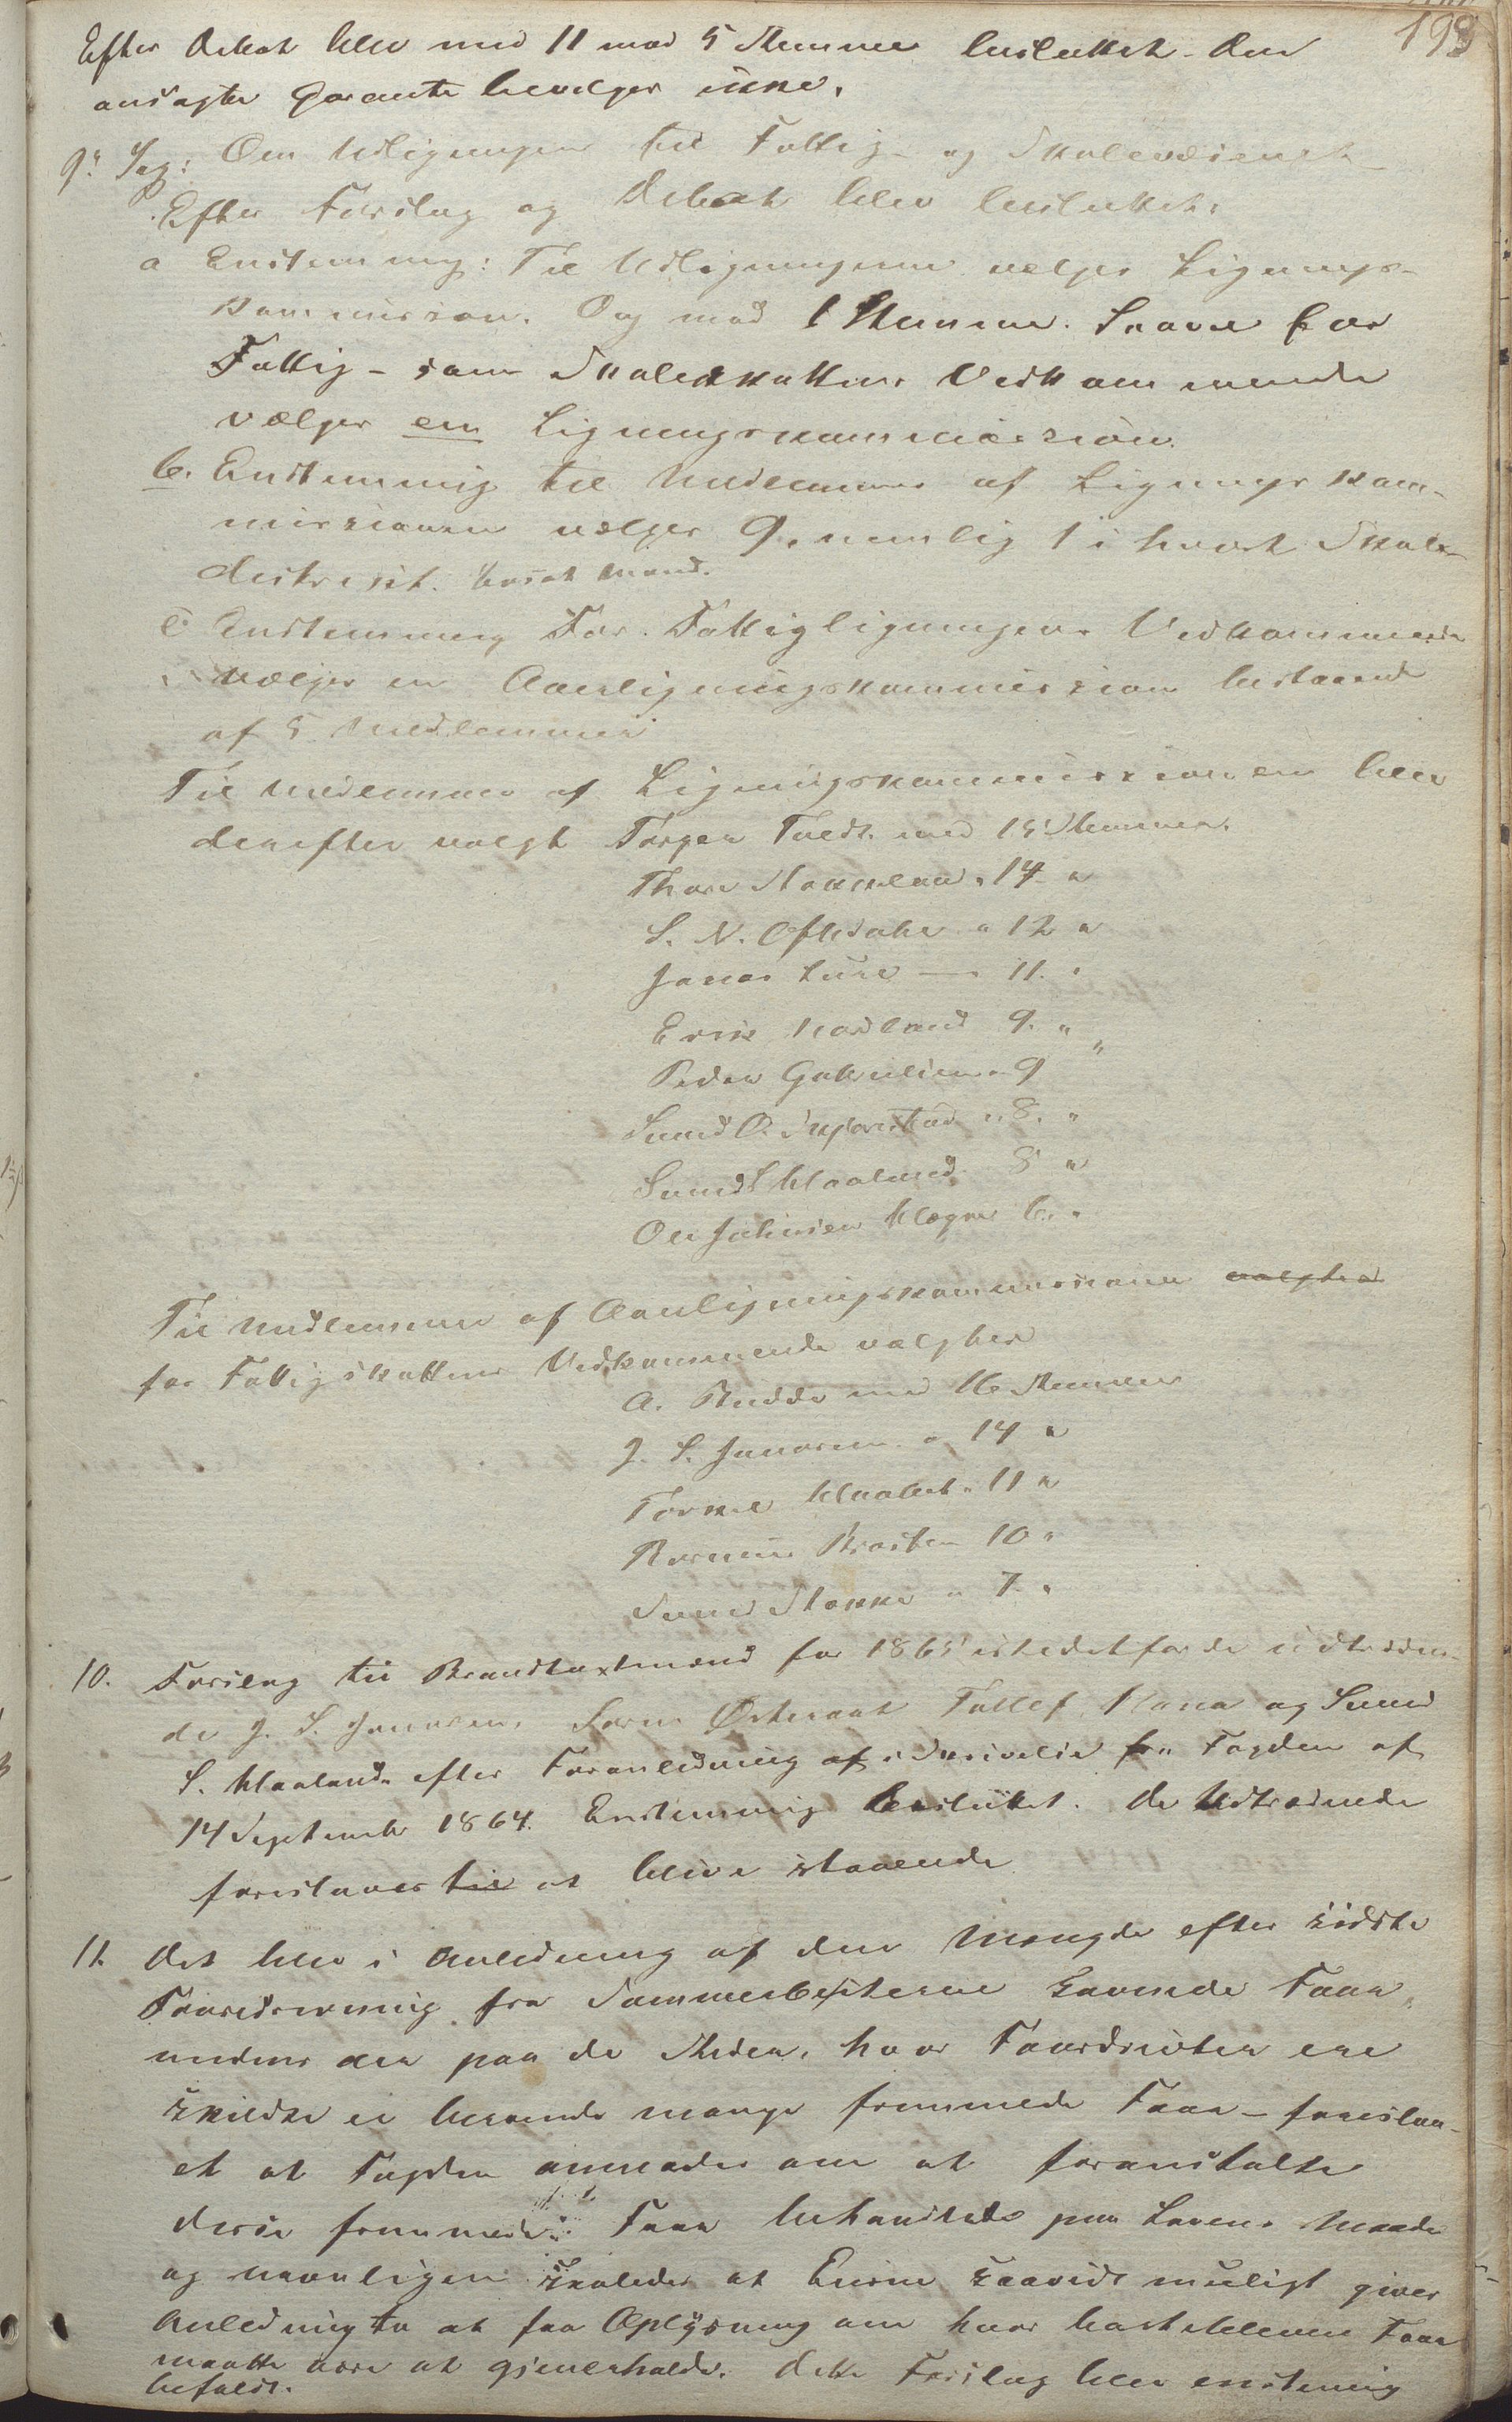 198
Efter Debat blev med 11 mod 5 Stemmer besluttet. Den
ansøgte Garanti bevilges ikke.
9. Sag: Om Udligningen til Fattig- og Skolevæsenet
Efter Forslag og Debat blev besluttet:
a Enstemmig: Til Udligningerne vælges Lignings-
kommission. Og mod 1 Stemme. Saavel for
Fattig- som Skoleskattens Vedkommende
vælges een Ligningskommission.
b. Enstemmig til Medlemmer af Ligningskom-
missionen vælges 9, nemlig 1 i hvert Skole-
distrikt. bosat Mand.
c Enstemmig For Fattigligningens Vedkommende
vælges en Overligningskommission bestaaende
af 5 Medlemmer
Til Medlemmer af Ligningskommissionen blev
derefter valgt Torger Tvedt med 15 Stemmer.
Thore Stokkeland " 14 "
S. N. Oftedahl " 12 "
Jonas Lura — 11. "
Erik Hadland 9. "
Peder Gakselien " 9 "
Svend O. Skjørestad " 8. "
Svend S Maaland 8 "
Ole Johnsen Kløgne 6. "
Til Medlemmer af Overligningskommissionen valgtes
for Fattigskattens Vedkommende valgtes
A. Budde med 16 Stemmer
J. S. Janasen " 14 "
Torkel Maaland " 11 "
Rasmus Brasten 10 "
Svend Stokke " 7. "
10. Forslag til Brandtaxtmænd for 1865 istedetfor de udtræden-
de J. S. Janasen, Søren Østeraat Tollef Hana og Svend
S. Maaland. efter Foranledning af i Skrivelse fra Fogden af
14 September 1864. Enstemmig besluttet. De Udtrædende
foreslaaes til at blive staaende
11. Det blev i Anledning af den Mængde efter sidste
Faaredrivning fra Sommerbeiterne savnede Faar,
medens der paa de Steder, hvor Faardrivten ere
skildte er bleven mange fremmede Faar – foreslaa-
et at Fogden anmodes om at foranstalte
disse fremmede Faar behandlede paa Lovens Maade
og navnligen saaledes at Eieren saavidt muligt gives
Anledning til at faa Oplysning om hvor bortkomne Faar
maatte være at gjenerholde. Dette Forslag blev enstemmig
bifaldt.